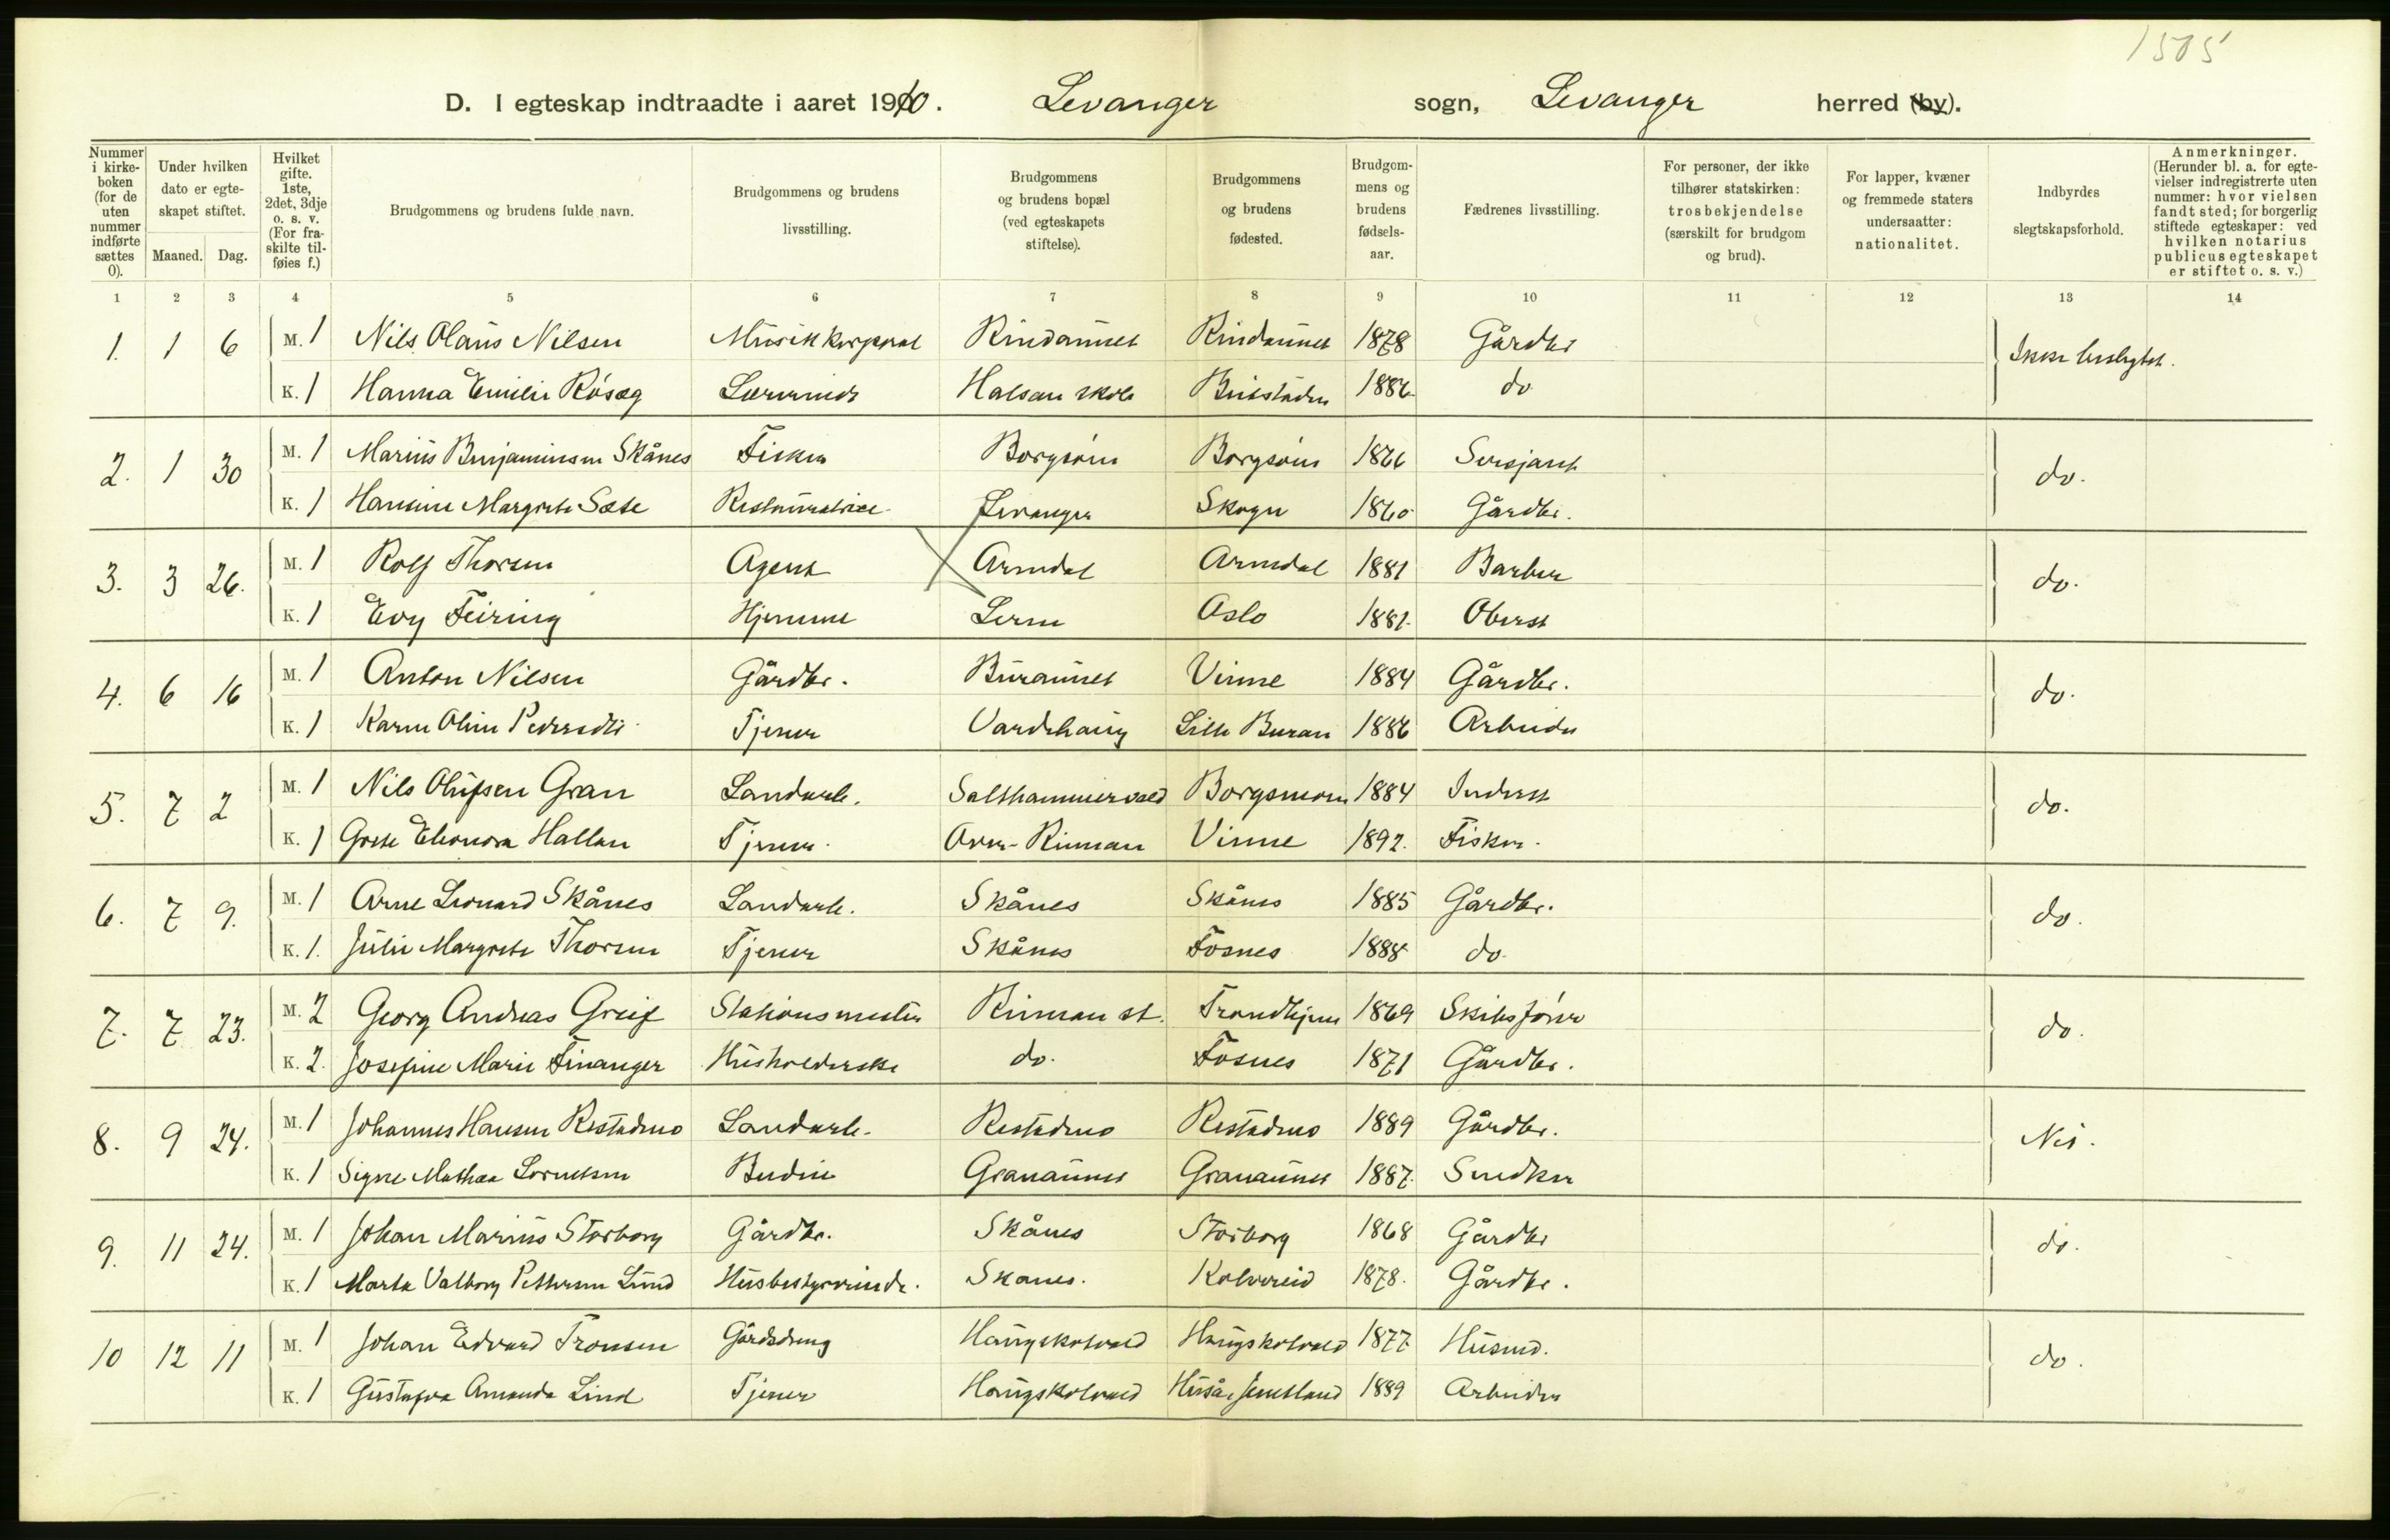 1505
D. I egteskap indtraadte i aaret 1910. Levanger sogn, Levanger herred (by).
Nummer i kirkeboken (for de uten nummer indførte sættes 0).
Under hvilken dato er egteskapet stiftet.
Maaned. Dag.
Hvilket gifte. 1ste, 2det, 3dje o. s. v. (For fraskilte tilføies f.)
Brudgommens og brudens fulde navn.
Brudgommens og brudens livsstilling.
Brudgommens og brudens bopæl (ved egteskapets stiftelse).
Brudgommens og brudens fødested.
Brudgommens og brudens fødselsaar.
Fædrenes livsstilling.
For personer, der ikke tilhører statskirken: trosbekjendelse (særskilt for brudgom og brud).
For lapper, kvæner og fremmede staters undersaatter: nationalitet.
Indbyrdes slegtskapsforhold.
Anmerkninger. (Herunder bl. a. for egtevielser indregistrerte uten nummer: hvor vielsen fandt sted; for borgerlig stiftede egteskaper: ved hvilken notarius publicus egteskapet er stiftet o. s. v.)
1 2 3 4 5 6 7 8 9 10 11 12 13 14
1. 1 6 M. 1 Nils Olaus Nilsen Musikkorporal Rindaunet Rindaunet 1878 Gårdbr
K. 1 Hanna Emilie Røsæg Lærerinde Halsan skole 1886 do
2. 1 30 M. 1 Marius Benjaminsen Skånes Fisker Borgsøen Borgsøen 1866 Sersjant do.
K. 1 Hansine Margrete Sæte Restauratrice Levanger Skogn 1860 Gårdbr.
3. 3 26. M. 1 Rolf Thorsen Agent Arendal Arendal 1881 Barber do.
K. 1 Evy Feiring Hjemme Leren Oslo 1881. Oberst
4. 6 16 M. 1 Anton Nilsen Gårdbr. Buraunet Vinne 1884 Gårdbr. do.
K. 1 Karen Oline Pedersdtr Tjener Vardehaug Lille Buran 1886 Arbeider
5. 7 2 M. 1 Nils Olufsen Gran Landarb. Salthammervald 1884 Inderst do.
K. 1 Grete Eleonora Hallan Tjener. Rinnan Vinne 1892. Fisker.
6. 7 9. M. 1 Arne Leonard Skånes Landarb. Skånes Skånes 1885 Gårdbr. do.
K. 1. Julie Margrete Thorsen Tjener Skånes Fosnes 1888 do.
7. 7 23. M. 2 Georg Andreas Greig Stationsmester Rinnan st. Trondhjem 1869 Skibsfører do.
K. 2. Josefine Marie Finanger Husholderske do. Fosnes 1871 Gårdbr.
8. 9 24. M. 1 Johannes Hansen Restadmo Landarb. Restadmo Restadmo 1889 Gårdbr. Nei.
K. 1 Signe Mathea Lorentsen Budeie Granaunet Granaunet 1887. Snedker
9. 11 24. M. 1 Johan Marius Storborg Gårdbr. Skånes Storborg 1868 Gårdbr do.
K. 1 Marta Valborg Pettersen Lund Husbestyrerinde. Skånes. Kolvereid 1878. Gårdbr.
10 12 11 M. 1 Johan Edvard Tronsen Gårdsdreng Haugskotvald Haugskotvald 1877 Husmd. do.
K. 1 Gustafva Amanda Lind Tjener Haugskotvald Huså, Jemtland 1889 Arbeider